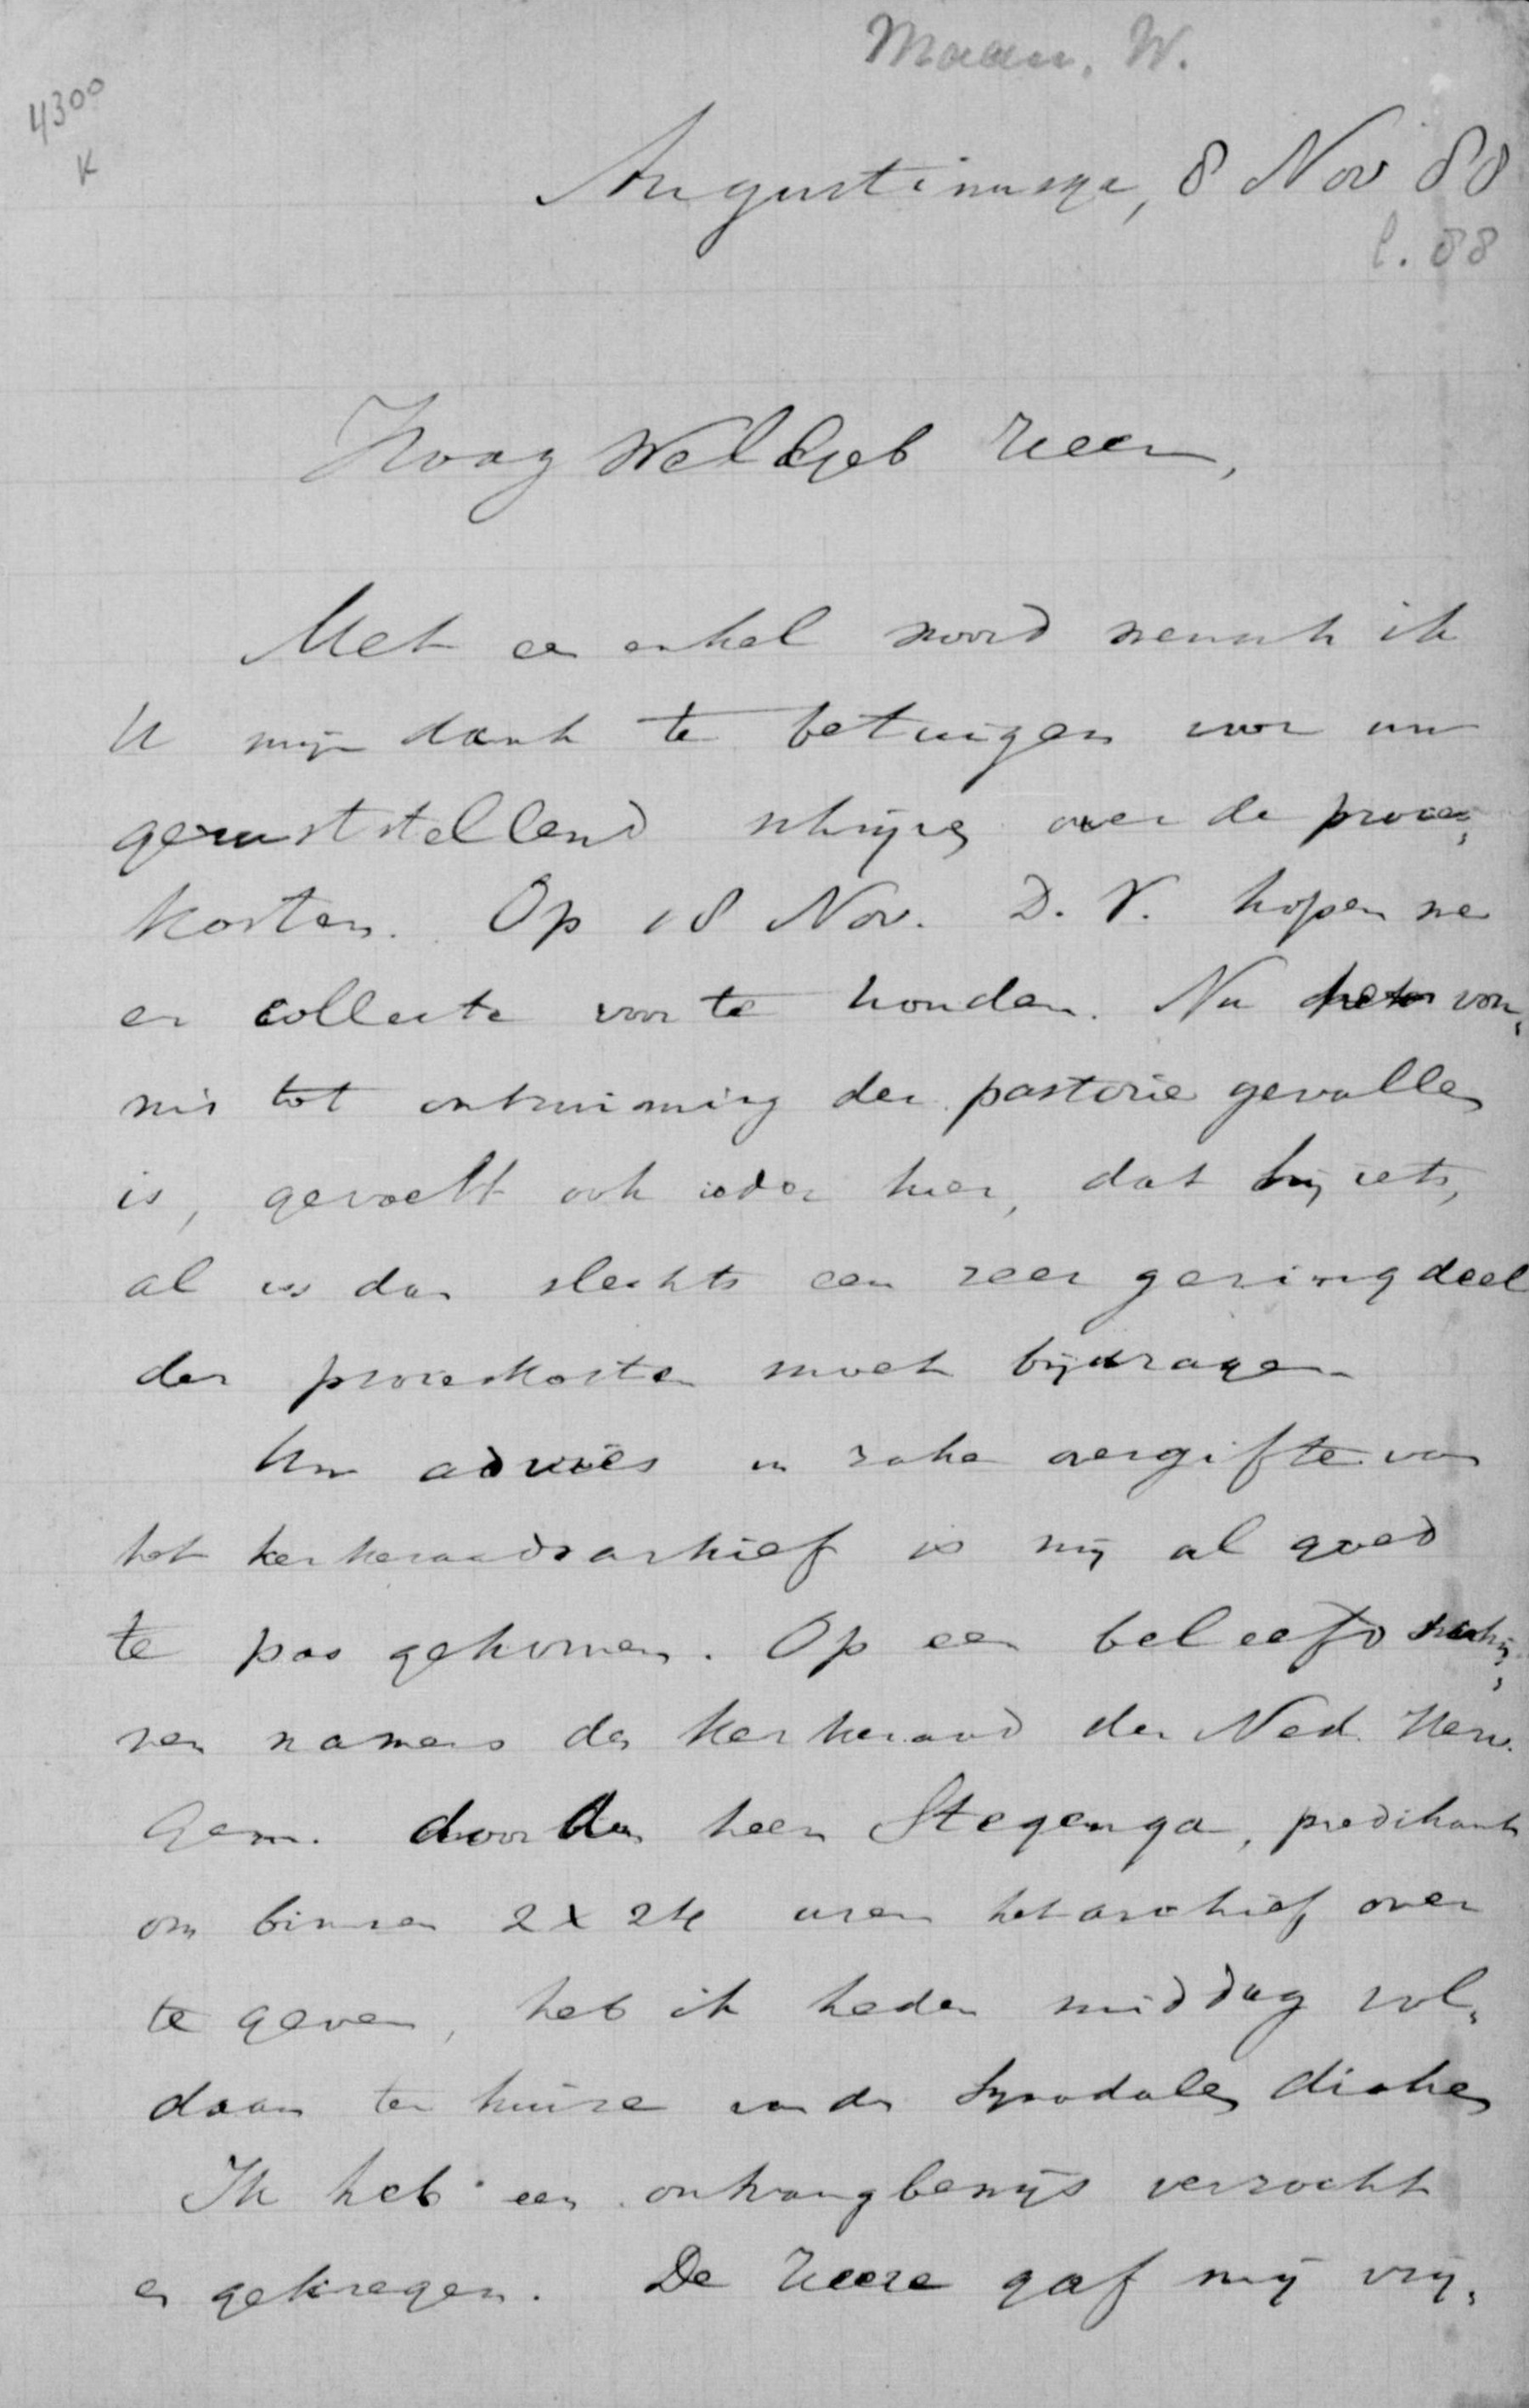 Maan, W.
4300
K
Augustinusga, 8 Nov 88
l. 88
Hoog WelGeb Heer,
Met een enkel woord wensch ik
U mijn dank te betuigen voor uw
geruststellend schrijven over de proces„
kosten. Op 18 Nov. D. V. hopen we
er collecte voor te houden. Nu het von„
nis tot ontruiming der pastorie gevallen
is, gevoelt ook ieder hier, dat hij iets,
al is dan slechts een zeer gering deel
der proceskosten moet bijdragen.
Uw advies in zake overgifte van
het kerkeraadsarchief is mij al goed
te pas gekomen. Op een beleefd schrij„
ven namens den kerkeraad der Ned. Herv.
Gem. door den heer Stegenga, predikant
om binnen 2 x 24 uren het archief over
te geven, heb ik heden middag vol„
daan ten huize van den Synodalen diaken
Ik heb een ontvangbewijs verzocht
en gekregen. De Heere gaf mij vrij„